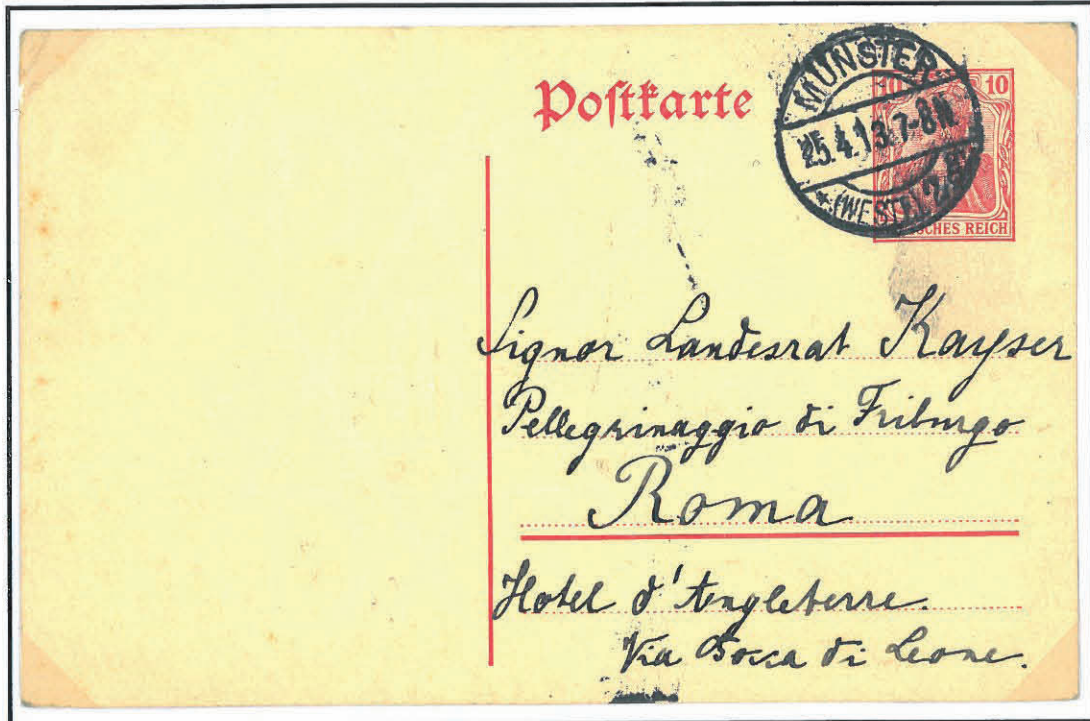 Postkarte
MÜNSTER
10 10
25.4.13.7-8N.
*(WESTF.)
SCHES REICH
Signor Landesrat Kayser
Pellegrinaggio di Friburgo
Roma
Hotel d'Angleterre.
Via Bocca di Leone.